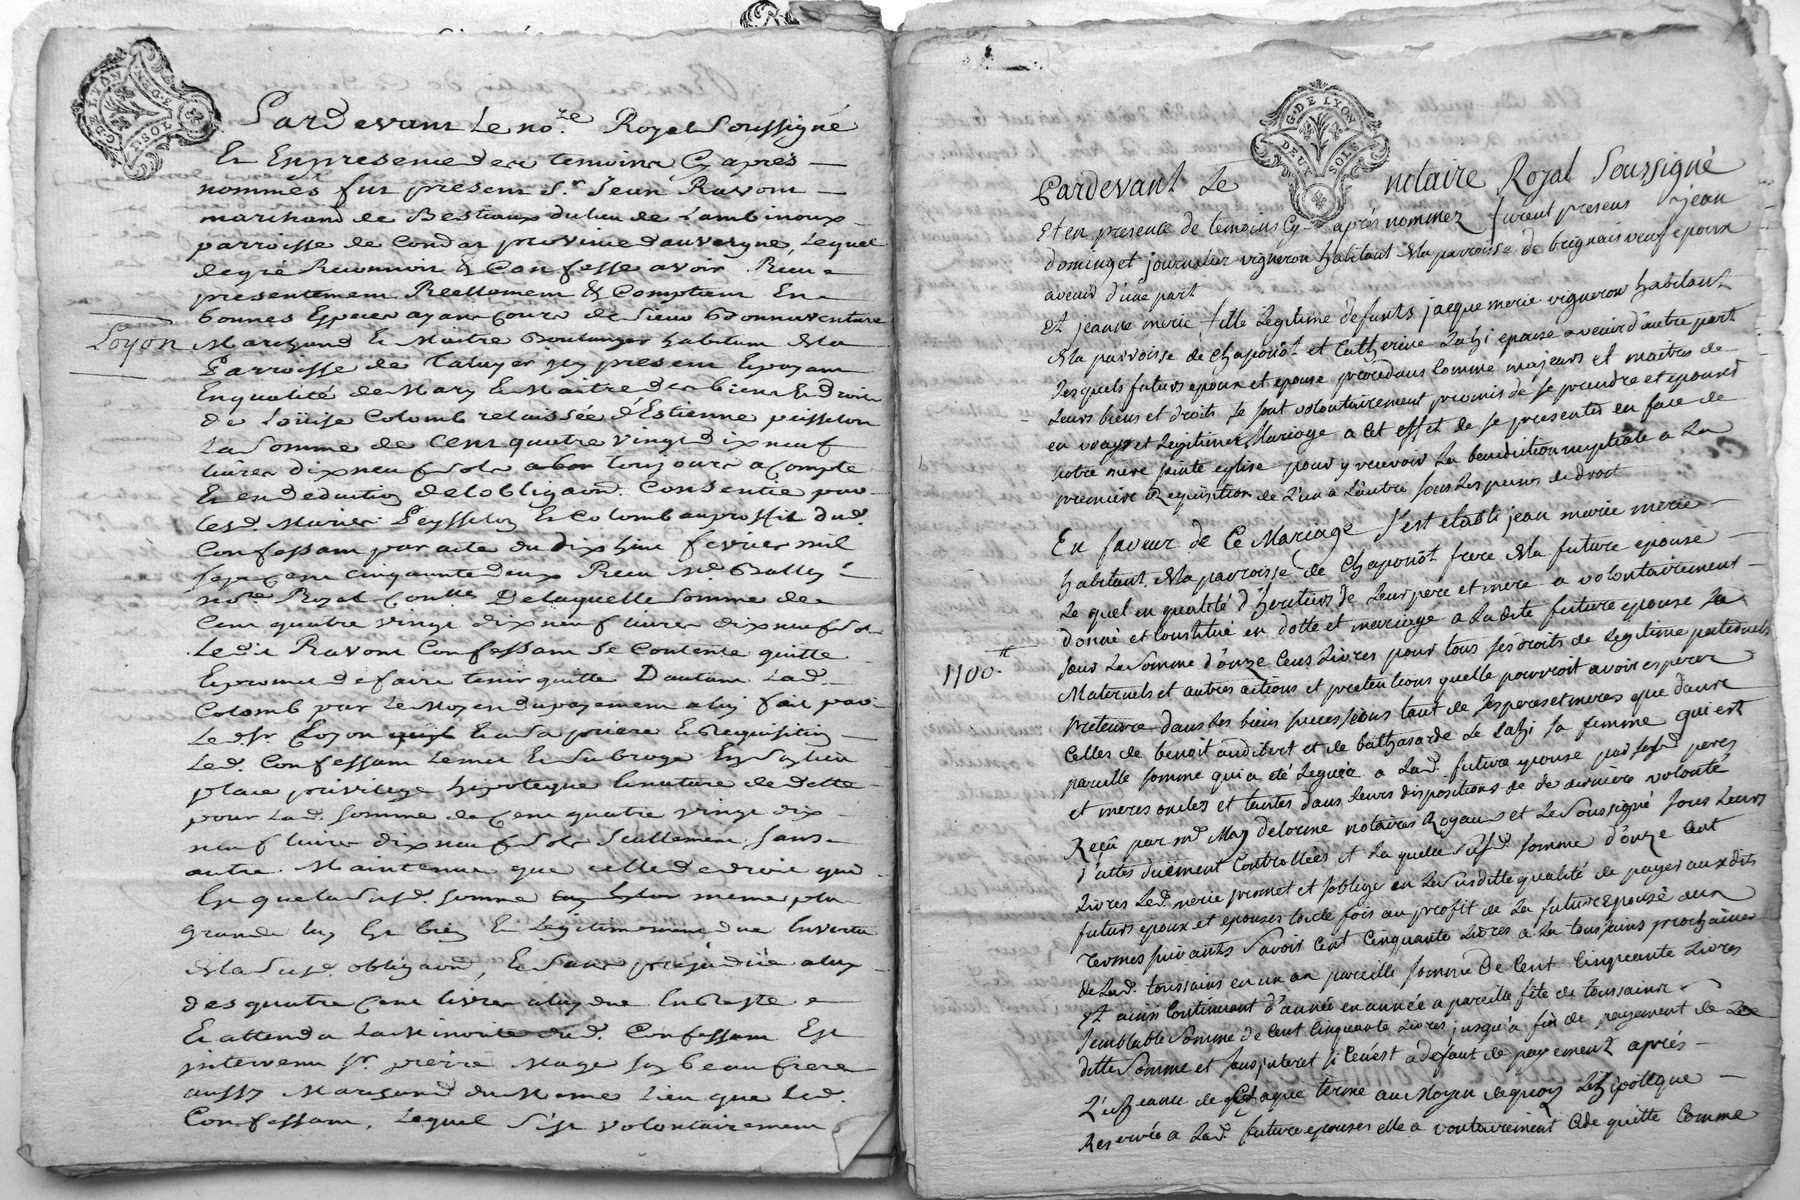 G. DE LYON
DEUX SOLS
Pardevant Le no.re Royal Soussigné
Et En presence des temoins Cy apres
nommés fut present S.r Jean Ravoux
marchand de Bestiaux du lieu de
parroisse de Condat province dauvergne, Lequel
de gré Reconnoit & Confesse avoir Reçu
presentement Reellement & Comptant En
bonnes Especes ayant Cours de Sieur Bonnaventure
Loyon
Marchand Et Maître Boulanger habitant de la
Parroisse de Taluyer icy present Payant
En qualité de Mary Et Maitre des biens Et droits
de Loüise Colomb relaissée d'Estienne peisselon
La Somme de Cent quatre vingt dix neuf
livres dix neuf Sols a bon toujours a Compte
Et en deduction de lobligaon. Consentie par
lesd. Mariés Peysselon Et Colomb au proffit dud.
Confessant par acte du dix huit fevrier mil
Sept Cent Cinquante deux Recu M.e
no.re Royal De laquelle Somme de
Cent quatre vingt dix neuf livres dix neuf Sols
Le dit Ravoux Confessant Se Contente quitte
Et promet de faire tenir quitte Dautant Lad.
Colomb par Le Moyen du payement a luy fait par
Le d. Sr. Loyon Et a Sa priere Et Requisition
Led. Confessant Lemet Et Subroge En Son lieu
place privilege hipoteque Et nature de dette
pour Lad. Somme de Cent quatre vingt dix
neuf livres dix neuf Sols Seullement, Sans
autre Maintenue que celle de droit que
Et que la Susd. Somme meme plus
grande luy Est bien Et Legitimement due En vertu
de la Susd. obligaon, Et Sans prejudice a luy
des quatre Cent livres a luy due En Reste
Et attendu La Minorité dud. Confessant Est
intervenu Sr. pierre Mage Son beau frere
aussy Marchand du Meme Lieu que Led.
Confessant, Lequel S'est volontairement
G. DE LYON
DEUX SOLS
Pardevant Le notaire Royal Soussigné
Et en presence de temoins Cy apres nommez furent presens jean
dominget journalier vigneron habitant de la parroisse de brignais veuf epoux
avenir d'une part
Et jeanne merie fille Legitime defunts jacque merie vigneron habitant
de la parroisse de Chaponôt et Catherine Lahi epouse avenir d'autre part
Lesquels futurs epoux et epouse procedans Comme majeurs et maitres de
Leurs biens et droits Se sont volontairement promis de Se prendre et epouser
en vray et Legitime Mariage a Cet effet de Se presenter en face de
notre mere Sainte eglise pour y recevoir La benediction nuptiale a La
premiere Requisition de L'un a L'autre Sous Les peines de droit
En faveur de Ce Mariage S'est etabli jean merie
habitant de la parroisse de Chaponôt frere de la future epouse
Le quel en qualité d'heritier de Leur pere et mere a volontairement
donné et Constitué en dotte et mariage a La dite future epouse
1100.tt
pour La Somme d'onze Cens Livres pour tous Ses droits de Legitime paternels
Maternels et autres actions et pretentions quelle pourroit avoir esperer
pretendre dans Les biens Successions tant de Ses peres et meres que dans
Celles de benoit audibert et de balthasarde Le Lahi Sa femme qui est
pareille Somme qui a été Leguée a Lad. future epouse par Sesd. peres
et meres oncles et tantes dans Leurs dispositions de derniere volonté
Reçû par M.e May delorme notaires Royaux et Le Soussigné Sous Leurs
d'attes duement Controllées et La quelle Susd. Somme d'onze Cent
Livres Led. merie promet et S'oblige en La Susditte qualité de payer auxdits
futurs epoux et epouses au profit de La future epouse aux
Termes Suivants Savoir Cent Cinquante Livres a La toussaint prochaine
de Lad. toussains en un an pareille Somme De Cent Cinquante Livres
Et ainsi Continuer d'année en année a pareille fête de toussaint
Semblable Somme de Cent Cinquante Livres jusqu'a fin de payement de La
ditte Somme et Sans interet Si Ce n'est a defaut de payement après
L'echeance de Chaque terme au Moyen de quoy Lhipoteque
Reservée a Lad. future epouse elle a quitte Comme